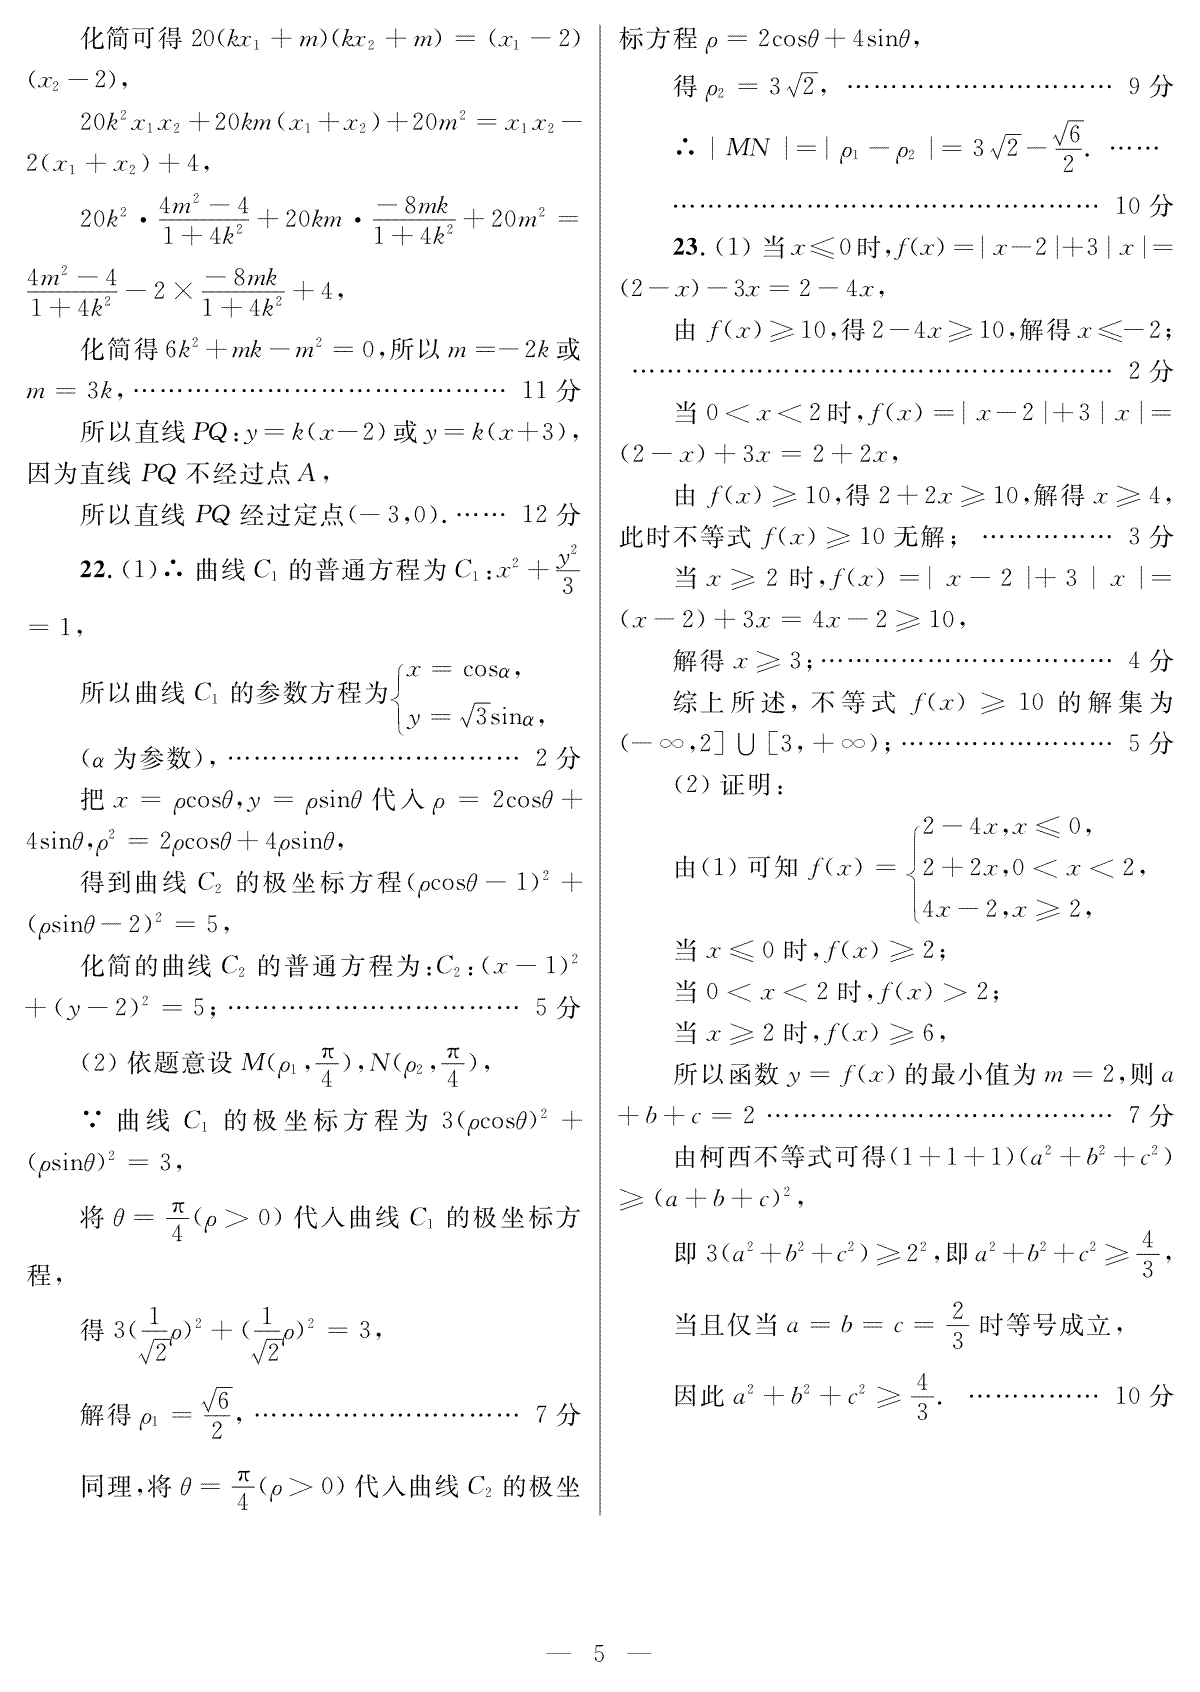 化简可得 20(kx₁ + m)(kx₂ + m) = (x₁ − 2)
(x₂ − 2),
20k²x₁x₂ + 20km(x₁ + x₂) + 20m² = x₁x₂ −
2(x₁ + x₂) + 4,
20k² · (4m² − 4)/(1 + 4k²) + 20km · (− 8mk)/(1 + 4k²) + 20m² =
(4m² − 4)/(1 + 4k²) − 2 × (− 8mk)/(1 + 4k²) + 4,
化简得 6k² + mk − m² = 0,所以 m =− 2k 或
m = 3k, …………………………………… 11 分
所以直线 PQ:y = k(x−2) 或 y = k(x+3),
因为直线 PQ 不经过点 A,
所以直线 PQ 经过定点(− 3,0). …… 12 分
22. (1)∴ 曲线 C₁ 的普通方程为 C₁:x² + y²/3
= 1,
所以曲线 C₁ 的参数方程为{x = cosα,
y = √3sinα,
(α 为参数), …………………………… 2 分
把 x = ρcosθ,y = ρsinθ 代入 ρ = 2cosθ +
4sinθ,ρ² = 2ρcosθ + 4ρsinθ,
得到曲线 C₂ 的极坐标方程(ρcosθ − 1)² +
(ρsinθ − 2)² = 5,
化简的曲线 C₂ 的普通方程为:C₂:(x − 1)²
+ (y − 2)² = 5; …………………………… 5 分
(2) 依题意设 M(ρ₁, π/4),N(ρ₂, π/4),
∵ 曲线 C₁ 的极坐标方程为 3(ρcosθ)² +
(ρsinθ)² = 3,
将 θ = π/4 (ρ > 0) 代入曲线 C₁ 的极坐标方
程,
得 3(1/√2 ρ)² + (1/√2 ρ)² = 3,
解得 ρ₁ = √6/2, ………………………… 7 分
同理,将 θ = π/4 (ρ > 0) 代入曲线 C₂ 的极坐
标方程 ρ = 2cosθ + 4sinθ,
得 ρ₂ = 3√2, ………………………… 9 分
∴ | MN |=| ρ₁ − ρ₂ |= 3√2 − √6/2. ……
………………………………………… 10 分
23. (1) 当 x ⩽ 0 时,f(x) =| x−2 |+3 | x |=
(2 − x) − 3x = 2 − 4x,
由 f(x) ⩾ 10,得 2−4x ⩾ 10,解得 x ⩽− 2;
……………………………………………… 2 分
当 0 < x < 2 时,f(x) =| x−2 |+3 | x |=
(2 − x) + 3x = 2 + 2x,
由 f(x) ⩾ 10,得 2 + 2x ⩾ 10,解得 x ⩾ 4,
此时不等式 f(x) ⩾ 10 无解; …………… 3 分
当 x ⩾ 2 时,f(x) =| x − 2 |+ 3 | x |=
(x − 2) + 3x = 4x − 2 ⩾ 10,
解得 x ⩾ 3; …………………………… 4 分
综上所述, 不等式 f(x) ⩾ 10 的解集为
(− ∞,2] ∪ [3, + ∞); …………………… 5 分
(2) 证明:
由(1) 可知 f(x) = {2 − 4x,x ⩽ 0,
2 + 2x,0 < x < 2,
4x − 2,x ⩾ 2,
当 x ⩽ 0 时,f(x) ⩾ 2;
当 0 < x < 2 时,f(x) > 2;
当 x ⩾ 2 时,f(x) ⩾ 6,
所以函数 y = f(x) 的最小值为 m = 2,则 a
+ b + c = 2 ………………………………… 7 分
由柯西不等式可得(1+1+1)(a² + b² + c²)
⩾ (a + b + c)²,
即 3(a² + b² + c²) ⩾ 2²,即 a² + b² + c² ⩾ 4/3,
当且仅当 a = b = c = 2/3 时等号成立,
因此 a² + b² + c² ⩾ 4/3. …………… 10 分
— 5 —